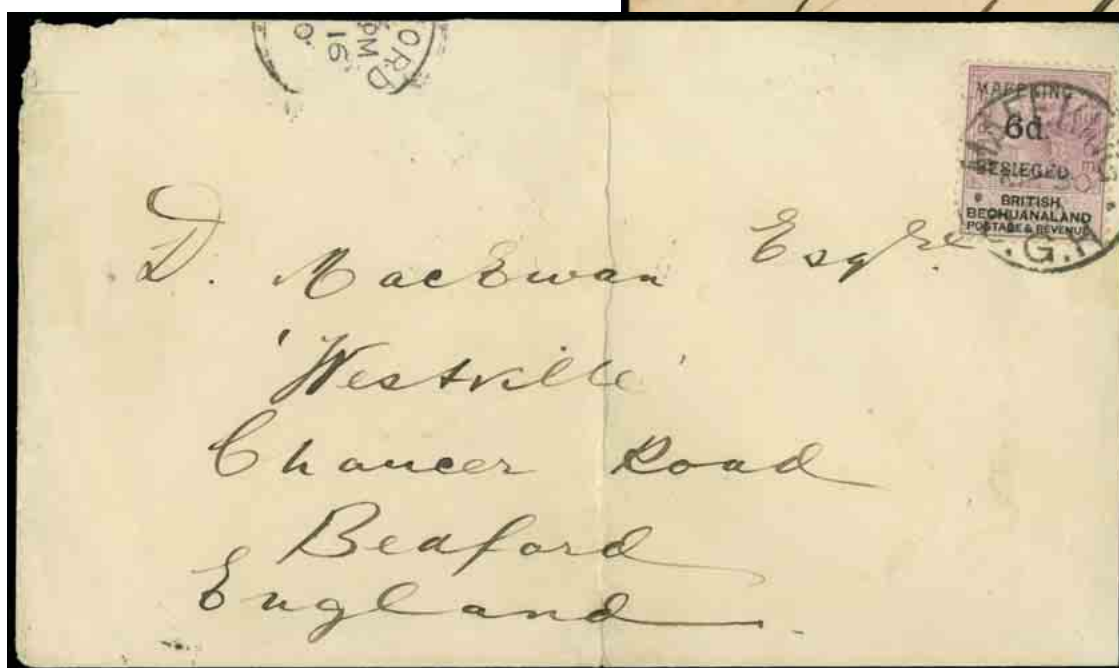 ORD
PM
16
0
MAFEKING
6d.
BESIEGED
BRITISH
BECHUANALAND
POSTAGE & REVENUE
MAFEKING
C.G.H
D. MacEwan Esqre.
'Westville'
Chaucer Road
Bedford
England